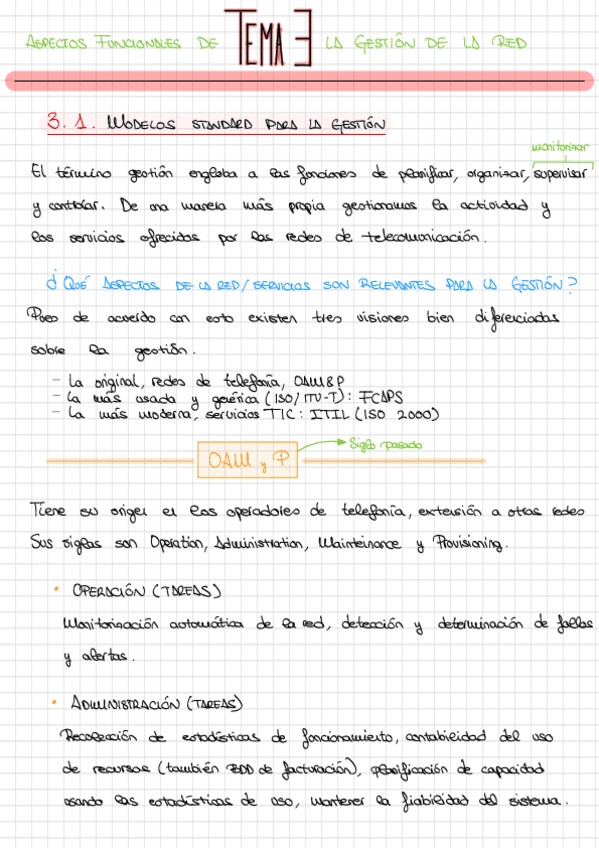 ASPECTOS FUNCIONALES DE TEMA 3 LA GESTIÓN DE LA RED
3.1. MODELOS STANDARD PARA LA GESTIÓN
monitorizar
El término gestión engloba a las funciones de planificar, organizar, supervisar
y controlar. De una manera más propia gestionamos la actividad y
los servicios ofrecidos por las redes de telecomunicación.
¿QUÉ ASPECTOS DE LA RED/SERVICIOS SON RELEVANTES PARA LA GESTIÓN?
Pues de acuerdo con esto existen tres visiones bien diferenciadas
sobre la gestión.
- La original, redes de telefonía, OAM&P
- La más usada y genérica (ISO/ITU-T): FCAPS
- La más moderna, servicios TIC: ITIL (ISO 2000)
Siglo pasado
OAM y P
Tiene su origen en los operadores de telefonía, extensión a otras redes
Sus siglas son Operation, Administration, Mainteinance y Provisioning.
• OPERACIÓN (TAREAS)
Monitorización automática de la red, detección y determinación de fallas
y alertas.
• ADMINISTRACIÓN (TAREAS)
Recolección de estadísticas de funcionamiento, contabilidad del uso
de recursos (también BDD de facturación), planificación de capacidad
usando las estadísticas de uso, mantener la fiabilidad del sistema.